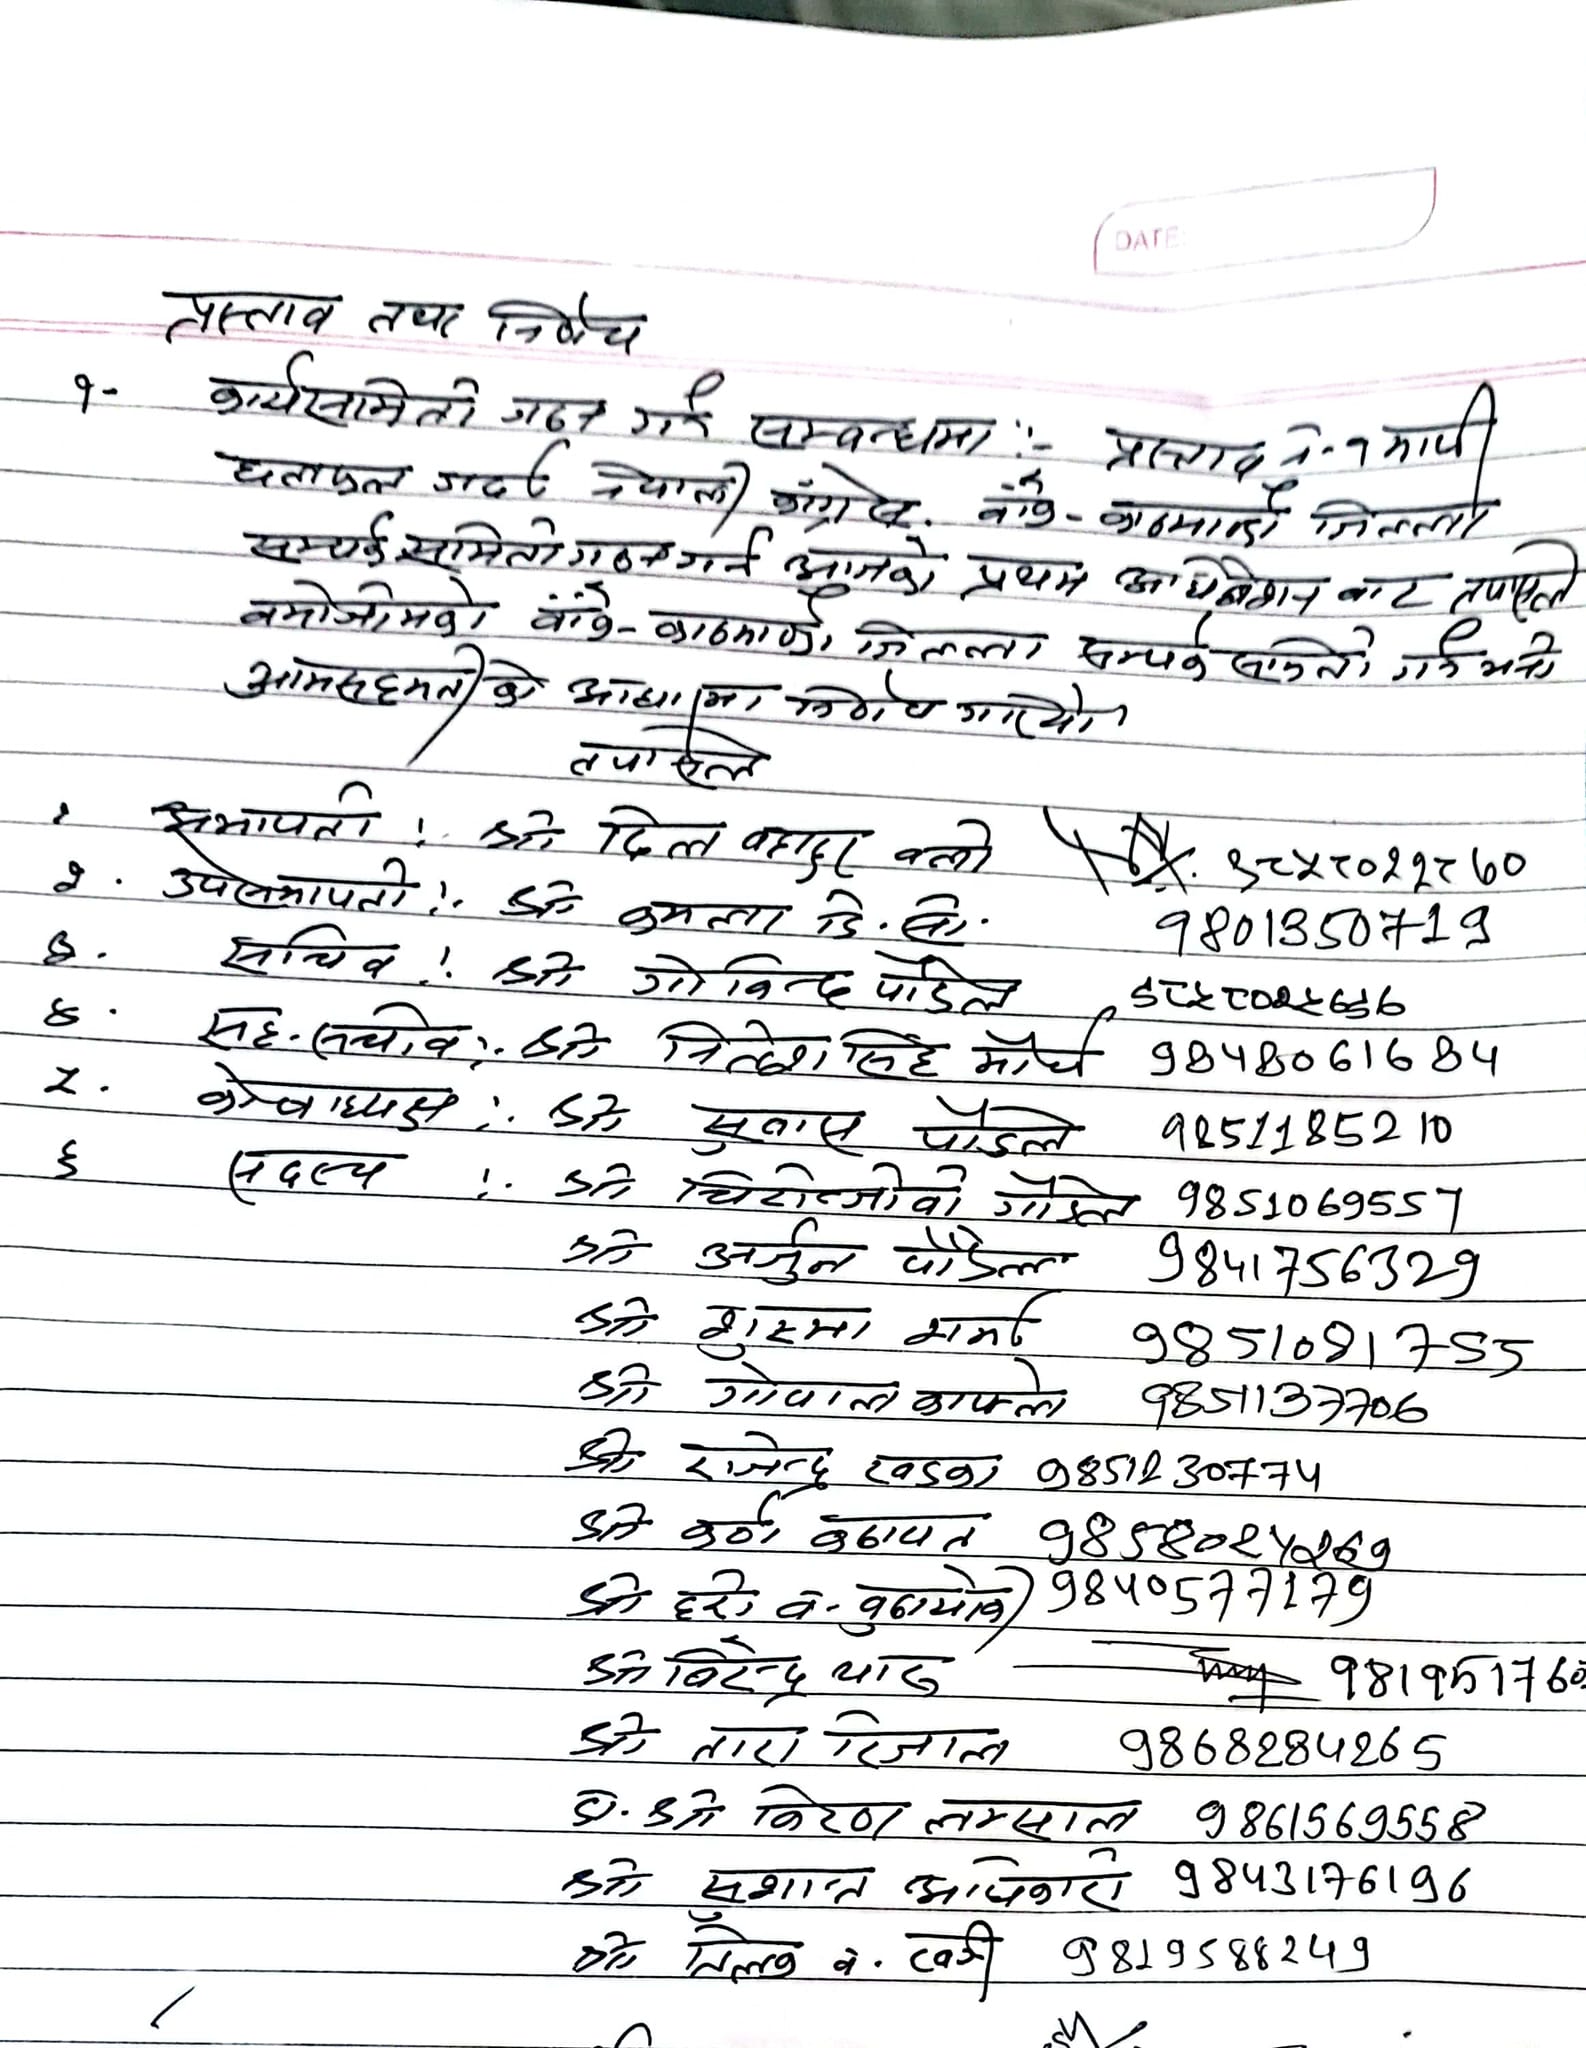 DATE:
प्रस्ताव तथा निर्णय
१- कार्यसमिती गठन गर्ने सम्बन्धमा :- प्रस्ताव नं.-१ माथी
छलफल गर्दा नेपाली कांग्रेस. बाँके-काठमाडौं जिल्ला
सम्पर्क समिती गठन गर्न आजको प्रथम अधिवेशन बाट तपसिल
बमोजीमको बाँके-काठमाडौं जिल्ला सम्पर्क समिती गर्ने भनी
आमसहमती को आधारमा निर्णय गरियो।
तपसिल
१ सभापती :. श्री दिल बहादुर वली ९८५८०२२८६०
२. उपसभापती :. श्री कमला डि. सी. 9801350719
३. सचिव :. श्री गोविन्द पौडेल
४. सह-सचीव :. श्री नितेश सिंह मौर्य 9848061684
५. कोषाध्यक्ष :. श्री सुवास पौडेल 9851185210
६ सदस्य :. श्री चिरीन्जीवी पौडेल 9851069557
श्री अर्जुन पौडेल 9841756329
श्री शुस्मा शर्मा 9851081755
श्री गोपाल काफ्ले 9851133706
श्री राजेन्द्र खडका 9851230774
श्री कर्ण कठायत 9858024269
श्री हरी ब. बुढाथोकी 9840577179
श्री बिरेन्द्र 981951760
श्री तारा रिजाल 9868284265
श्री किरण लम्साल 9861569558
श्री सुशान्त अधिकारी 9843176196
श्री तिलक ब. खत्री 9819588249